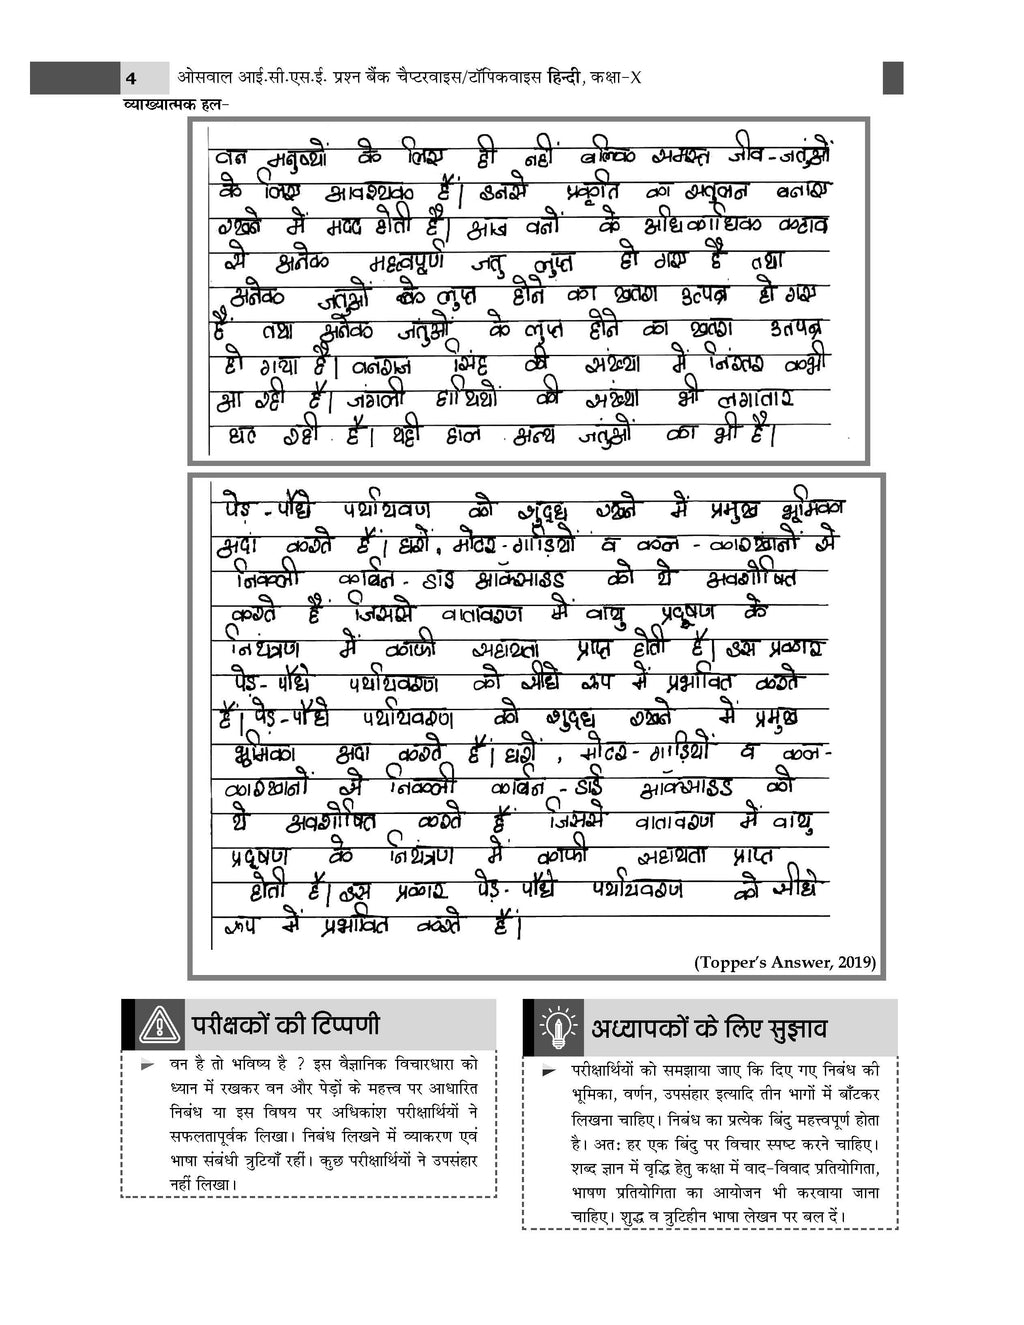 4 ओसवाल आई.सी.एस.ई. प्रश्न बैंक चैप्टरवाइस/टॉपिकवाइस हिन्दी, कक्षा-X
व्याख्यात्मक हल-
वन मनुष्यों के लिए ही नहीं बल्कि समस्त जीव-जतुंओं
के लिए आवश्यक हैं। इनसे प्रकृति का सतुंलन बनाए
रखने में मदद होती है। आज वनों के अधिकाधिक कटाव
से अनेक महत्वपूर्ण जतु लुप्त हो गए है तथा
अनेक जतुंओं के लुप्त होने का खतरा उत्पन्न हो गए
हैं तथा अनेक जंतुओं के लुप्त होने का खतरा उत्पन्न
हो गया है। वनराज सिंह की संख्या में निंरतर कमी
आ रही है। जंगली हाथियों की संख्या भी लगातार
घट रही है। यही हाल अन्य जंतुओं का भी है।
पेड़-पौधे पर्यायवरण को शुद्ध रखने में प्रमुख भूमिका
अदा करते हैं। घरों, मोटर-गाड़ियों व कल-कारखानों से
निकली कार्बन-डाइ ऑक्साइड को ये अवशोषित
करते हैं जिससे वातावरण में वायु प्रदूषण के
नियंत्रण में काफी सहायता प्राप्त होती है। इस प्रकार
पेड़-पौधे पर्यायवरण को सीधे रूप में प्रभावित करते
हैं। पेड़-पौधे पर्यायवरण को शुद्ध रखने में प्रमुख
भूमिका अदा करते हैं। घरों, मोटर-गाड़ियों व कल-
कारखानों से निकली कार्बन-डाई ऑक्साइड को
ये अवशोषित करते हैं जिससे वातावरण में वायु
प्रदूषण के नियंत्रण में काफी सहायता प्राप्त
होती है। इस प्रकार पेड़-पौधे पर्यायवरण को सीधे
रूप में प्रभावित करते हैं।
(Topper's Answer, 2019)
परीक्षकों की टिप्पणी
वन है तो भविष्य है ? इस वैज्ञानिक विचारधारा को
ध्यान में रखकर वन और पेड़ों के महत्त्व पर आधारित
निबंध या इस विषय पर अधिकांश परीक्षार्थियों ने
सफलतापूर्वक लिखा। निबंध लिखने में व्याकरण एवं
भाषा संबंधी त्रुटियाँ रहीं। कुछ परीक्षार्थियों ने उपसंहार
नहीं लिखा।
अध्यापकों के लिए सुझाव
परीक्षार्थियों को समझाया जाए कि दिए गए निबंध की
भूमिका, वर्णन, उपसंहार इत्यादि तीन भागों में बाँटकर
लिखना चाहिए। निबंध का प्रत्येक बिंदु महत्त्वपूर्ण होता
है। अत: हर एक बिंदु पर विचार स्पष्ट करने चाहिए।
शब्द ज्ञान में वृद्धि हेतु कक्षा में वाद-विवाद प्रतियोगिता,
भाषण प्रतियोगिता का आयोजन भी करवाया जाना
चाहिए। शुद्ध व त्रुटिहीन भाषा लेखन पर बल दें।